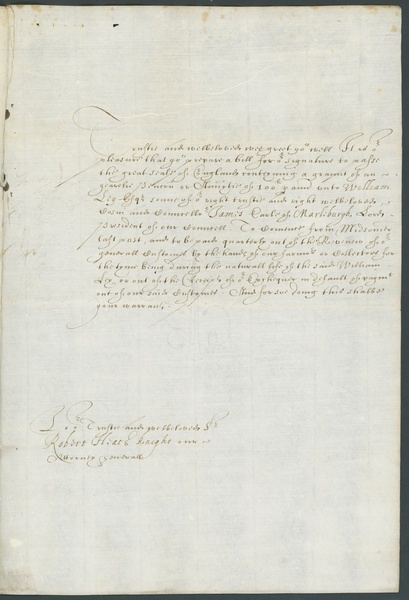 Trustie and welbeloved wee greet yow well It is oʳ
pleasure that yow prepare a bill for oʳ signature to passe
the great seale of England conteyning a graunt of an
yearelie Pencon or Annuitie of 100ˡ p ann unto William
Ley Esqʳ sonne of oʳ right trustie and right welbeloved
Cosin and Councellʳ James Earle of Marleburgh, Lord
President of our Councell. To Comence from Midsomer
last past, and to be paid quarterly out of the Revenew of oʳ
generall Customes by the hands of any farmer or Collectors for
the tyme being during the naturall life of the said William
Ley, or out of the Receipt of oʳ Exchequer in default of paymᵗ
out of our said Customes. And for soe doing this shalbe
your warrant.
To oʳ Trustie and welbeloved Sʳ
Robert Heath Knight our
Atturney Generall